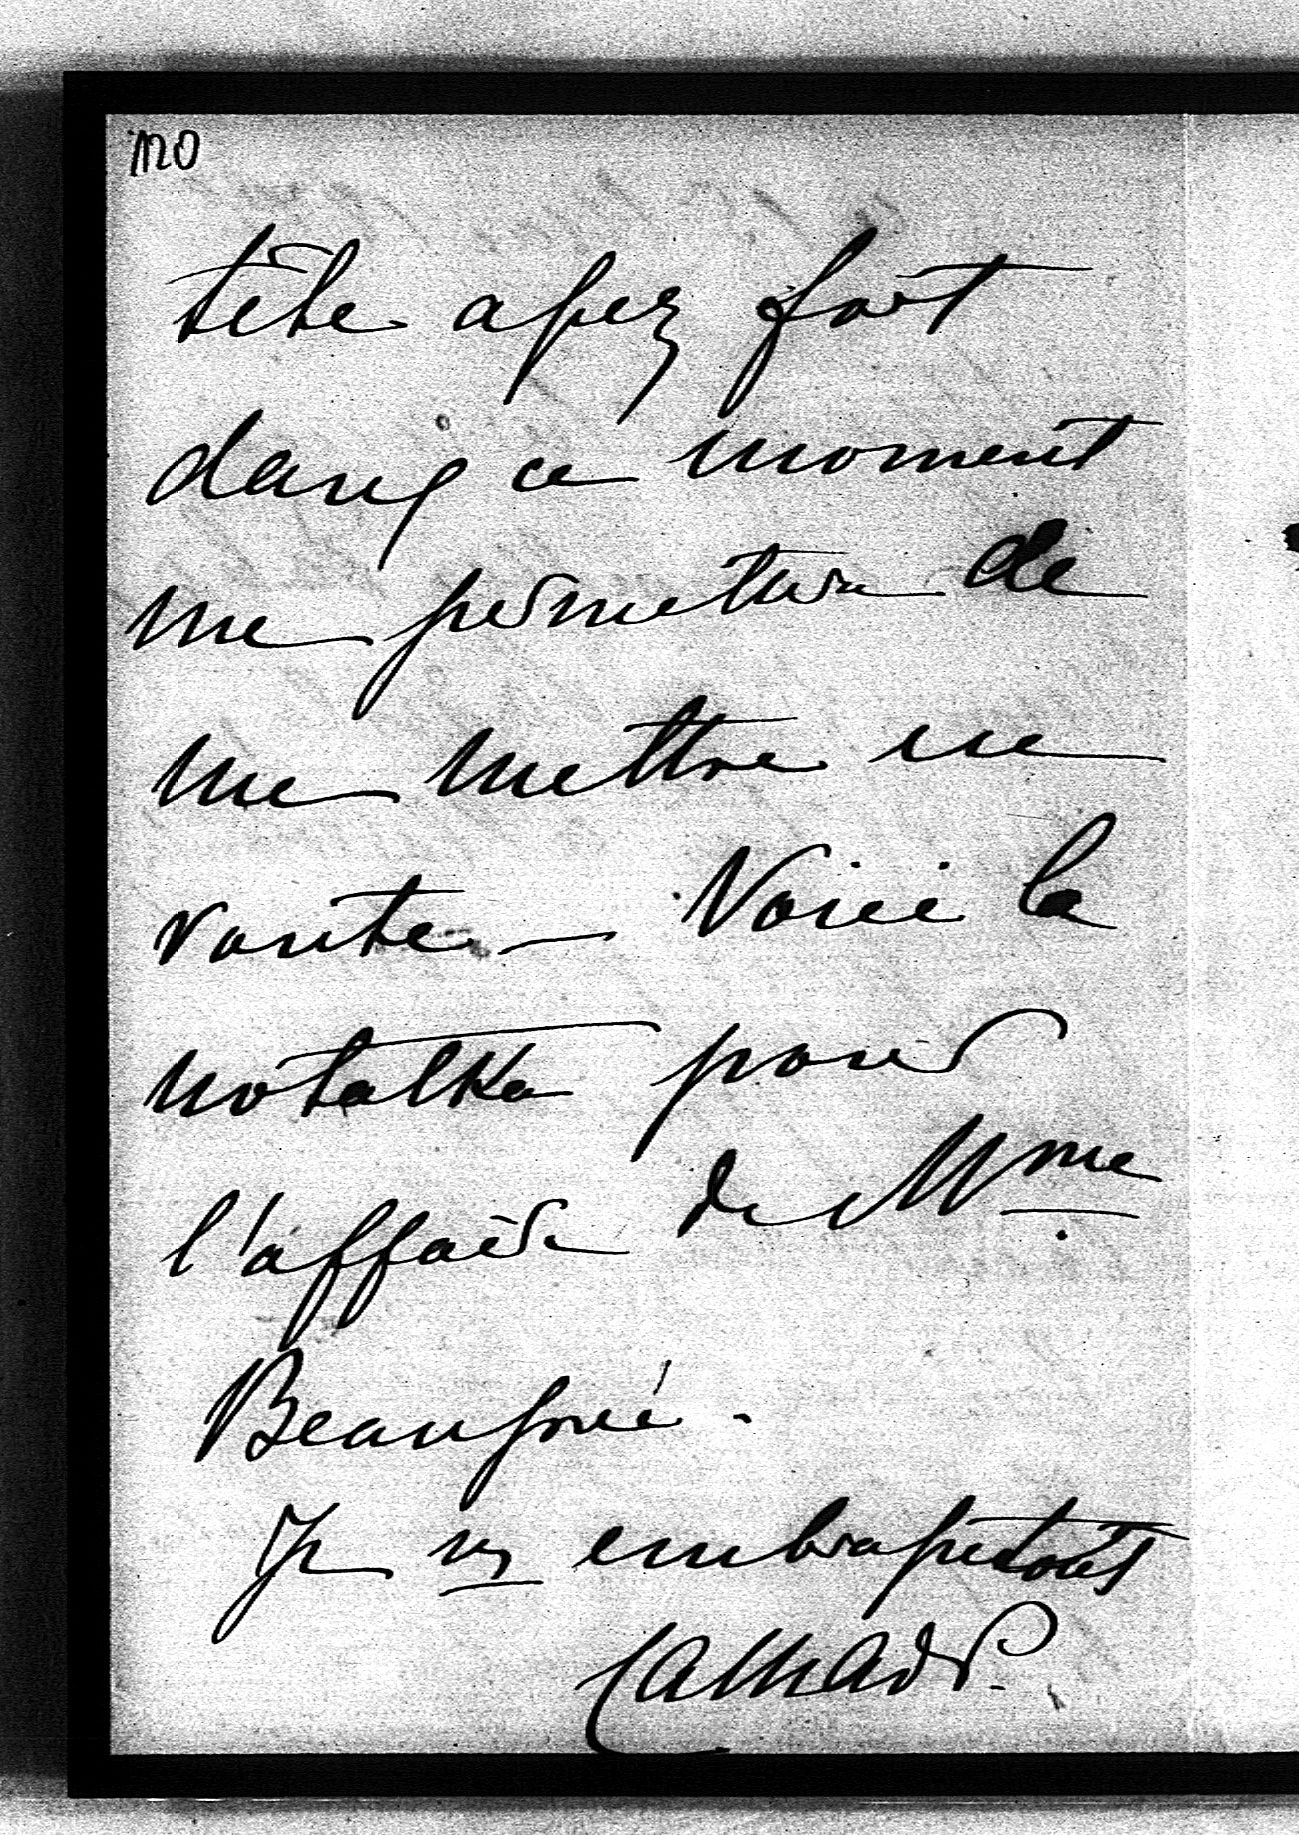 1120
tête assez fort
dans ce moment
me permettre de
me mettre en
route — Voici la
notalka pour
l'affaire de Mme
Beaupré.
Je vs embrasse tous